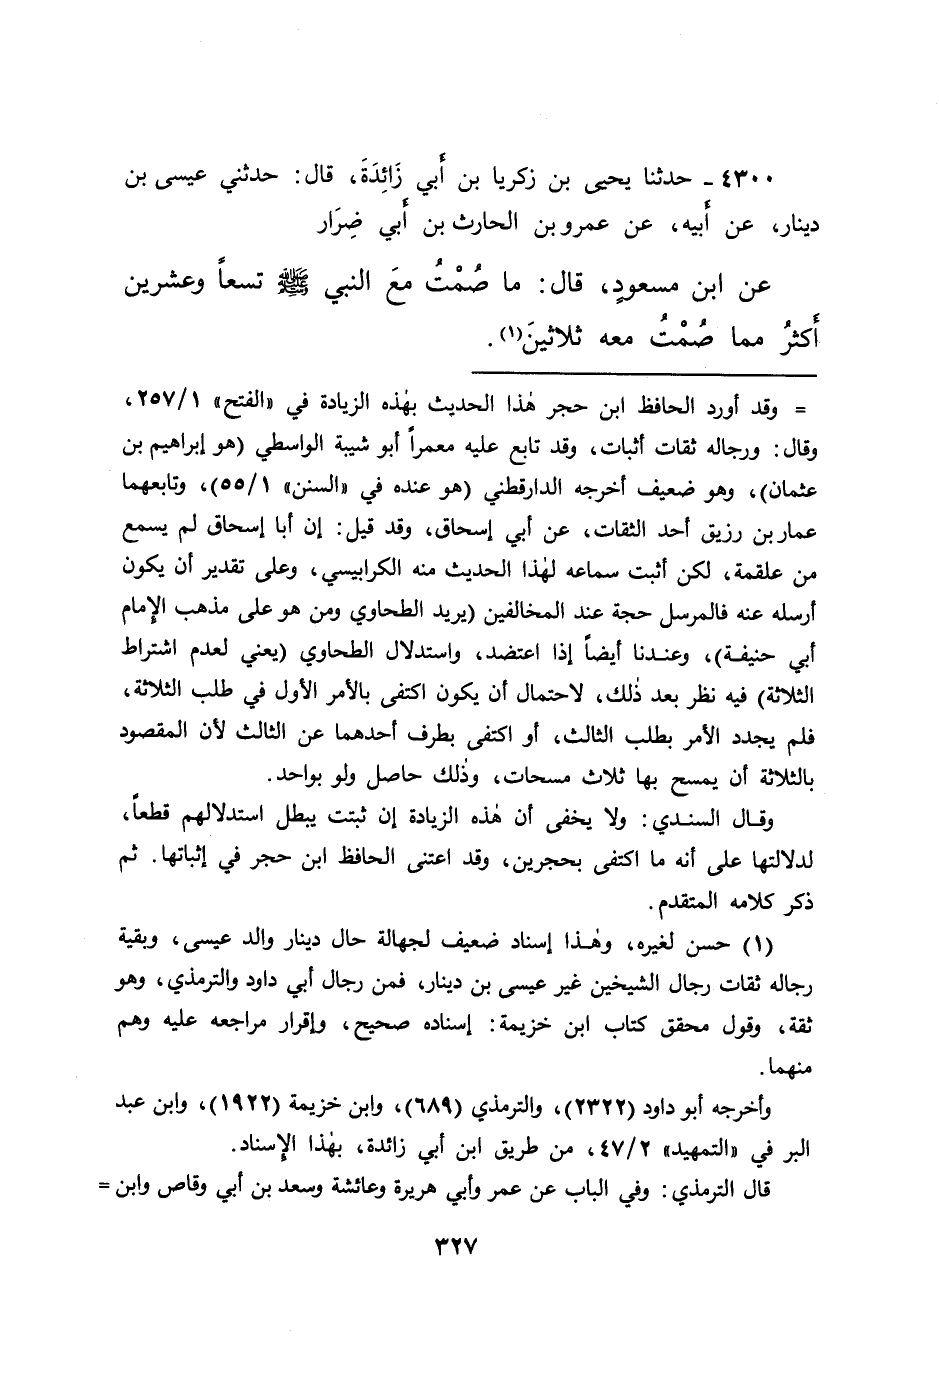 ٤٣٠٠ ـ حدثنا يحيى بن زكريا بن أَبي زَائِدَةَ، قال: حدثني عيسى بن
دينار، عن أَبيه، عن عمرو بن الحارث بن أَبي ضِرَار
عن ابن مسعودٍ، قال: ما صُمْتُ معَ النبي ﷺ تسعاً وعشرين
أَكثرُ مما صُمْتُ معه ثلاثينَ(١).
= وقد أورد الحافظ ابن حجر هٰذا الحديث بهٰذه الزيادة في «الفتح» ٢٥٧/١،
وقال: ورجاله ثقات أثبات، وقد تابع عليه معمراً أبو شيبة الواسطي (هو إبراهيم بن
عثمان)، وهو ضعيف أخرجه الدارقطني (هو عنده في «السنن» ٥٥/١)، وتابعهما
عمار بن رزيق أحد الثقات، عن أبي إسحاق، وقد قيل: إن أبا إسحاق لم يسمع
من علقمة، لكن أثبت سماعه لهٰذا الحديث منه الكرابيسي، وعلى تقدير أن يكون
أرسله عنه فالمرسل حجة عند المخالفين (يريد الطحاوي ومن هو على مذهب الإمام
أبي حنيفة)، وعندنا أيضاً إذا اعتضد، واستدلال الطحاوي (يعني لعدم اشتراط
الثلاثة) فيه نظر بعد ذٰلك، لاحتمال أن يكون اكتفى بالأمر الأول في طلب الثلاثة،
فلم يجدد الأمر بطلب الثالث، أو اكتفى بطرف أحدهما عن الثالث لأن المقصود
بالثلاثة أن يمسح بها ثلاث مسحات، وذٰلك حاصل ولو بواحد.
وقال السندي: ولا يخفى أن هٰذه الزيادة إن ثبتت يبطل استدلالهم قطعاً،
لدلالتها على أنه ما اكتفى بحجرين، وقد اعتنى الحافظ ابن حجر في إثباتها. ثم
ذكر كلامه المتقدم.
(١) حسن لغيره، وهٰذا إسناد ضعيف لجهالة حال دينار والد عيسى، وبقية
رجاله ثقات رجال الشيخين غير عيسى بن دينار، فمن رجال أبي داود والترمذي، وهو
ثقة، وقول محقق كتاب ابن خزيمة: إسناده صحيح، وإقرار مراجعه عليه وهم
منهما.
وأخرجه أبو داود (٢٣٢٢)، والترمذي (٦٨٩)، وابن خزيمة (١٩٢٢)، وابن عبد
البر في «التمهيد» ٤٧/٢، من طريق ابن أبي زائدة، بهٰذا الإسناد.
قال الترمذي: وفي الباب عن عمر وأبي هريرة وعائشة وسعد بن أبي وقاص وابن =
٣٢٧